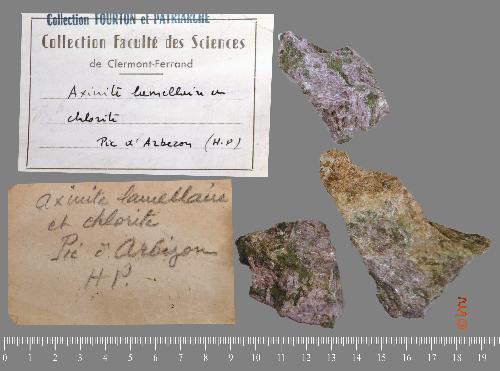 Collection FOURTON et PATRIARCHE
Collection Faculté des Sciences
de Clermont-Ferrand
Axinite lamellaire et
chlorite
Pic d'Arbezon (H.P)
axinite lamellaire
et chlorite
Pic d'Arbizon
H.P.
0 1 2 3 4 5 6 7 8 9 10 11 12 13 14 15 16 17 18 19